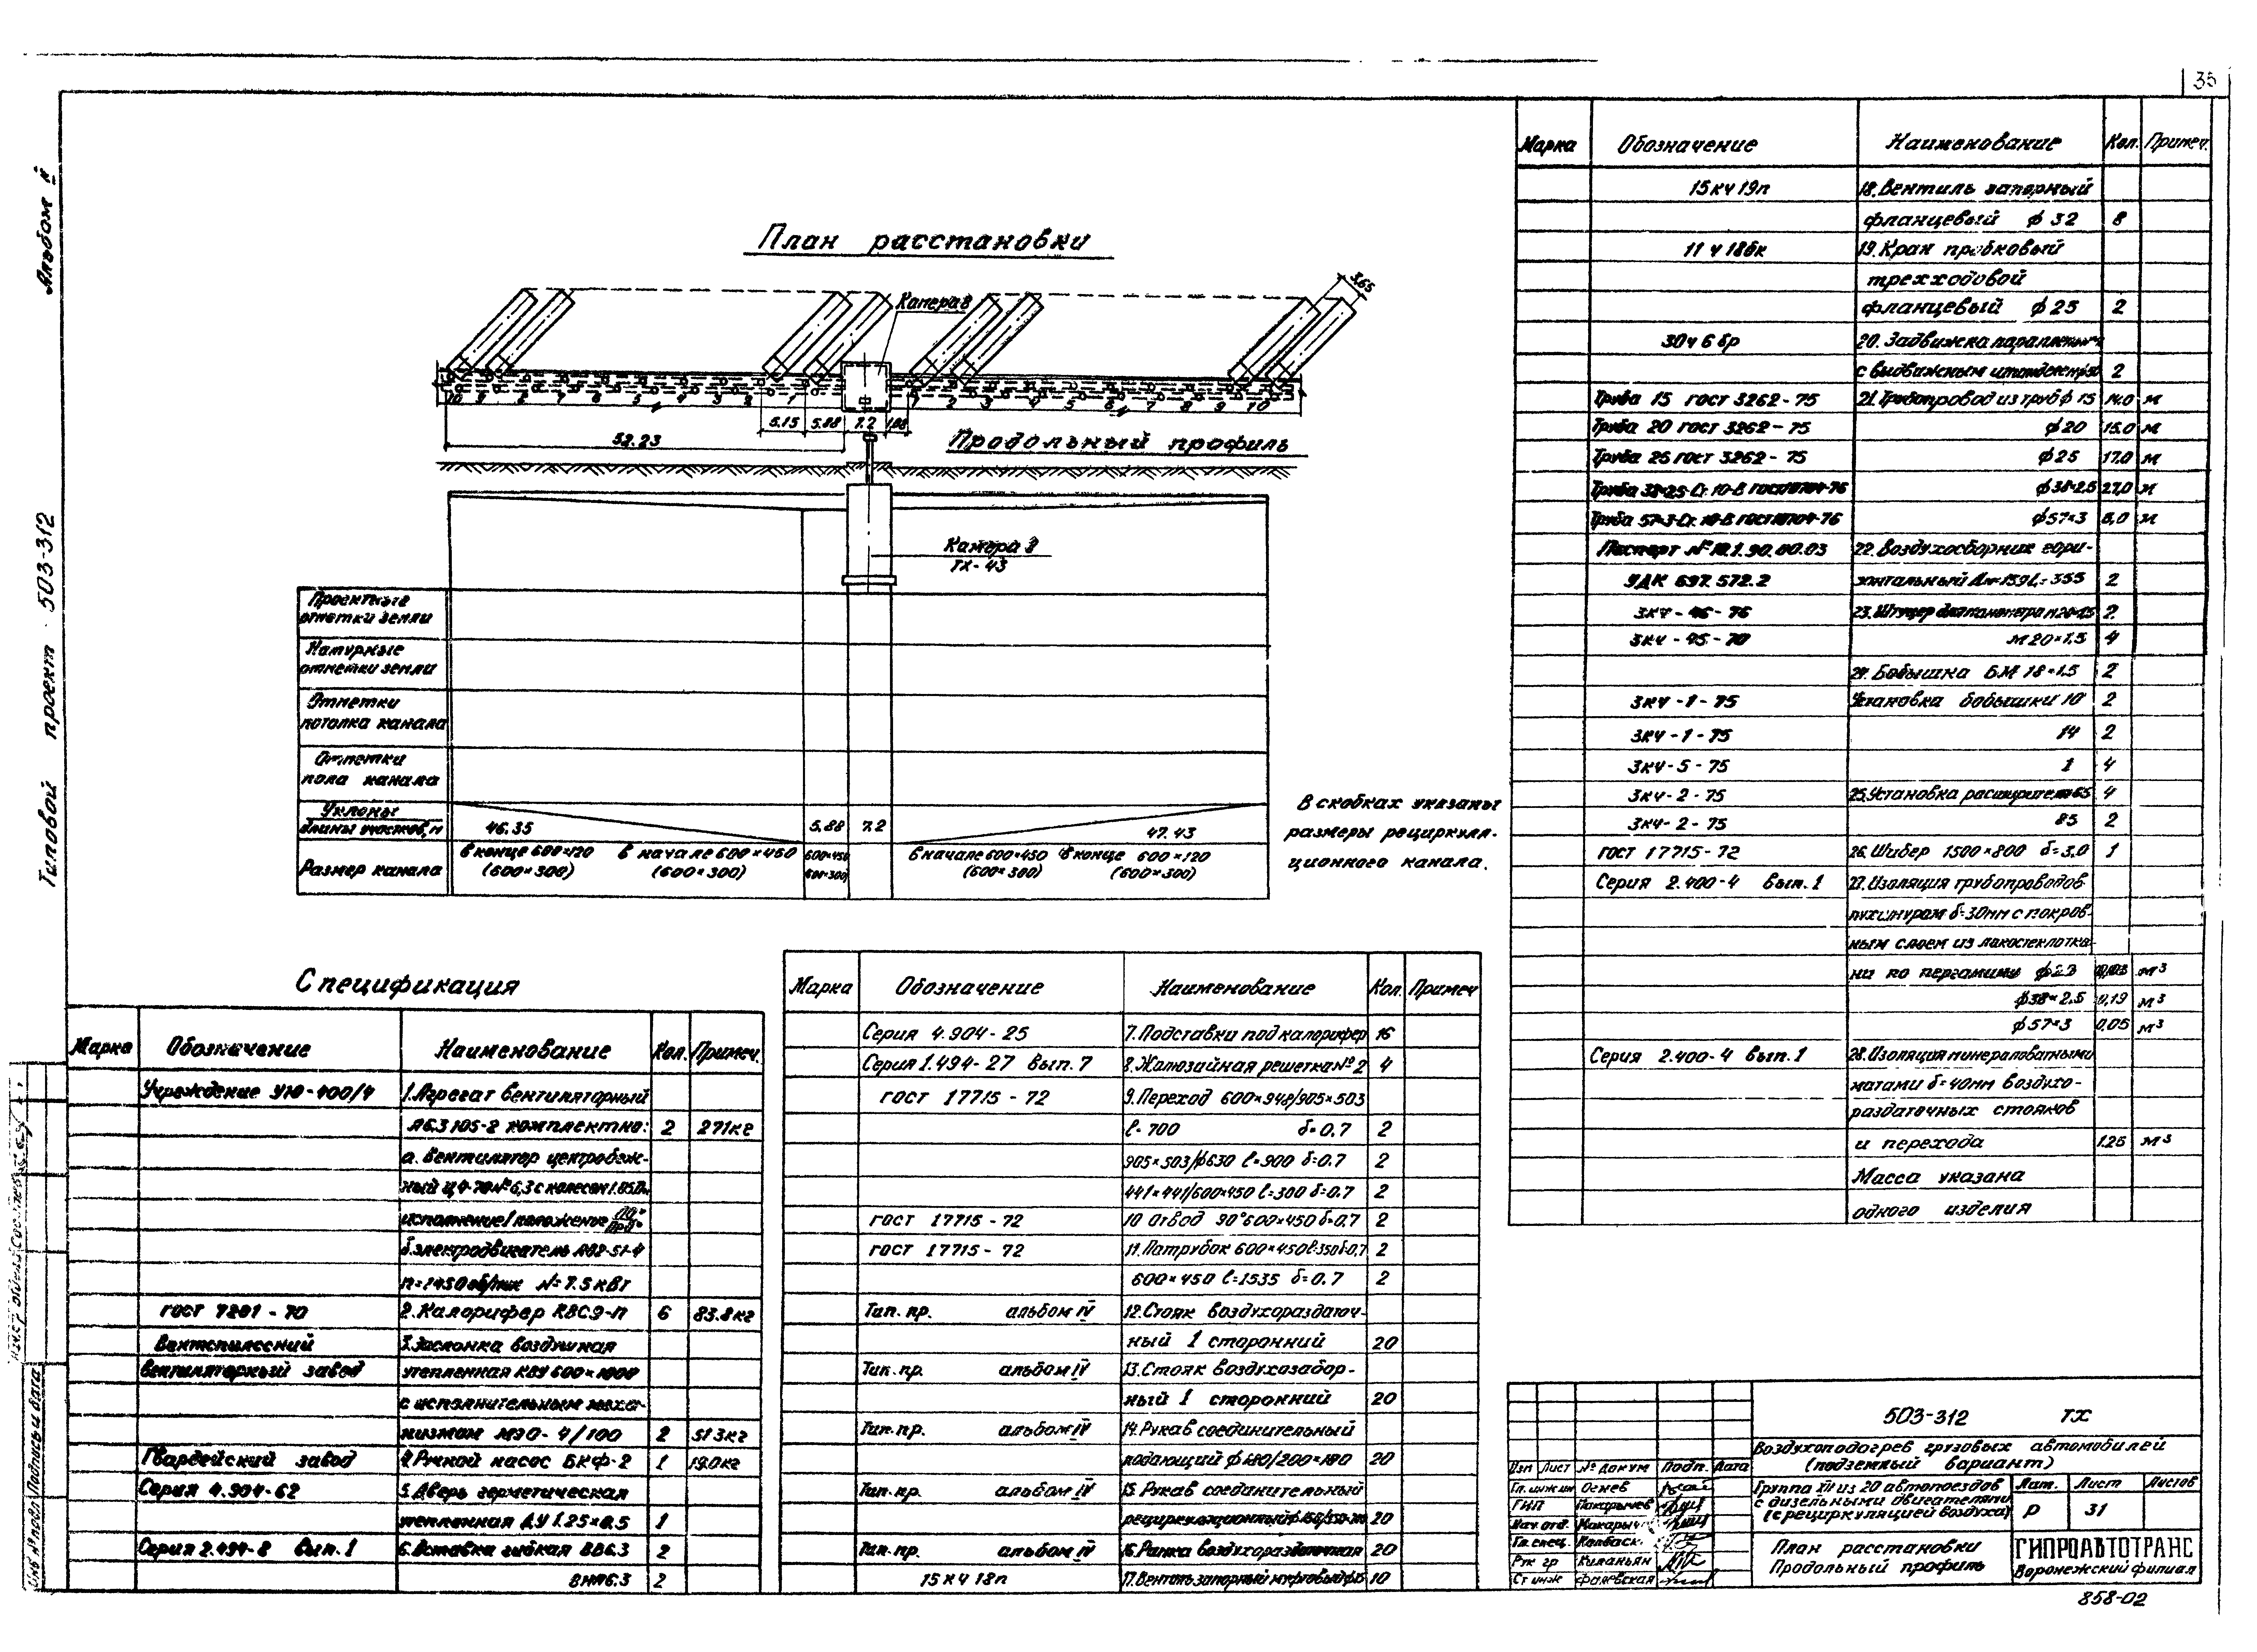 35
Альбом II
Типовой проект 503-312
План расстановки
Камера 8
3.65
10 9 8 7 6 5 4 3 2 1
1 2 3 4 5 6 7 8 9 10
5.15 5.88 7.2 1.08
52.23
Продольный профиль
Камера 8
ТХ-43
Проектные отметки земли
Натурные отметки земли
Отметки потолка канала
Отметки пола канала
Уклоны
длины участков, м
46.35 5.88 7.2 47.43
Размер канала
в конце 600×120 (600×300)
в начале 600×450 (600×300)
600×450
600×300
в начале 600×450 (600×300)
в конце 600×120 (600×300)
В скобках указаны
размеры рециркуля-
ционного канала.
Спецификация
Марка Обозначение Наименование Кол. Примеч.
Учреждение УЮ-400/4 1. Агрегат вентиляторный
А6.3105-2 комплектно: 2 271кг
а. Вентилятор центробеж-
ный Ц4-70 №6,3 с колесом 1.05Дн
исполнение 1 положение
б. электродвигатель А02-51-4
n=1450 об/мин N=7.5 кВт
гост 7201-70 2. Калорифер КВС9-п 6 83.8кг
Вентспилсский 3. Заслонка воздушная
вентиляторный завод утепленная КВУ 600×1000
с исполнительным меха-
низмом МЭО-4/100 2 51.3кг
Гвардейский завод 4. Ручной насос БКФ-2 1 19.0кг
Серия 4.904-62 5. Дверь герметическая
утепленная ДУ 1.25×0.5 1
Серия 2.494-8 вып. 1 6. Вставка гибкая ВВ6.3 2
ВНП6.3 2
Марка Обозначение Наименование Кол. Примеч
Серия 4.904-25 7. Подставки под калорифер 16
Серия 1.494-27 вып. 7 8. Жалюзийная решетка №2 4
гост 17715-72 9. Переход 600×948/905×503
ℓ=700 δ=0.7 2
905×503/ф630 ℓ=900 δ=0.7 2
441×441/600×450 ℓ=300 δ=0.7 2
гост 17715-72 10 Отвод 90° 600×450 δ=0.7 2
гост 17715-72 11. Патрубок 600×450 ℓ=350 δ=0,7 2
600×450 ℓ=1535 δ=0.7 2
Тип. пр. альбом IV 12. Стояк воздухораздаточ-
ный 1 сторонний 20
Тип. пр. альбом IV 13. Стояк воздухозабор-
ный 1 сторонний 20
Тип. пр. альбом IV 14. Рукав соединительный
подающий ф180/200×180 20
Тип. пр. альбом IV 15. Рукав соединительный
рециркуляционный 20
Тип. пр. альбом IV 16. Рамка воздухораздаточная 20
15кч18п 17. Вентиль запорный муфтовый ф15 10
Марка Обозначение Наименование Кол. Примеч.
15кч19п 18. Вентиль запорный
фланцевый ф32 8
11ч18бк 19. Кран пробковый
трехходовой
фланцевый ф25 2
30ч6бр 20. Задвижка параллельная
с выдвижным шпинделем 2
Труба 15 гост 3262-75 21. Трубопровод из труб ф15 14.0 м
Труба 20 гост 3262-75 ф20 15.0 м
Труба 25 гост 3262-75 ф25 17.0 м
Труба 38×2.5-Ст.10-В гост 10704-76 ф38×2.5 27,0 м
Труба 57×3-Ст.10-В гост 10704-76 ф57×3 5,0 м
Паспорт № 10.1.90.00.03 22. Воздухосборник гори-
УДК 697.572.2 зонтальный Дн=159 L=355 2
3кч-46-76 23. Штуцер для манометра 2
3кч-45-70 М20×1.5 4
24. Бобышка БМ 18×1.5 2
3кч-1-75 Установка бобышки 10 2
3кч-1-75 14 2
3кч-5-75 1 4
3кч-2-75 25. Установка расширителя 65 4
3кч-2-75 85 2
гост 17715-72 26. Шибер 1500×800 δ=3.0 1
Серия 2.400-4 вып. 1 27. Изоляция трубопроводов
пухшнуром δ=30мм с покров-
ным слоем из лакостеклотка-
ни по пергамину м³
ф38×2.5 0,19 м³
ф57×3 0,05 м³
Серия 2.400-4 вып. 1 28. Изоляция минераловатными
матами δ=40мм воздухо-
раздаточных стояков
и перехода 1.25 м³
Масса указана
одного изделия
503-312 ТХ
Воздухоподогрев грузовых автомобилей
(подземный вариант)
Изм Лист № докум Подп. Дата
Гл. инж. ин Огнев
ГИП Макарычев
Нач. отд. Макарыч
Гл. спец. Колбаск.
Рук гр Киланьян
Ст инж Фаневская
Группа XII из 20 автопоездов
с дизельными двигателями
(с рециркуляцией воздуха)
Лит. Лист Листов
Р 31
План расстановки
Продольный профиль
ГИПРОАВТОТРАНС
Воронежский филиал
858-02
Инв № подл Подпись и дата